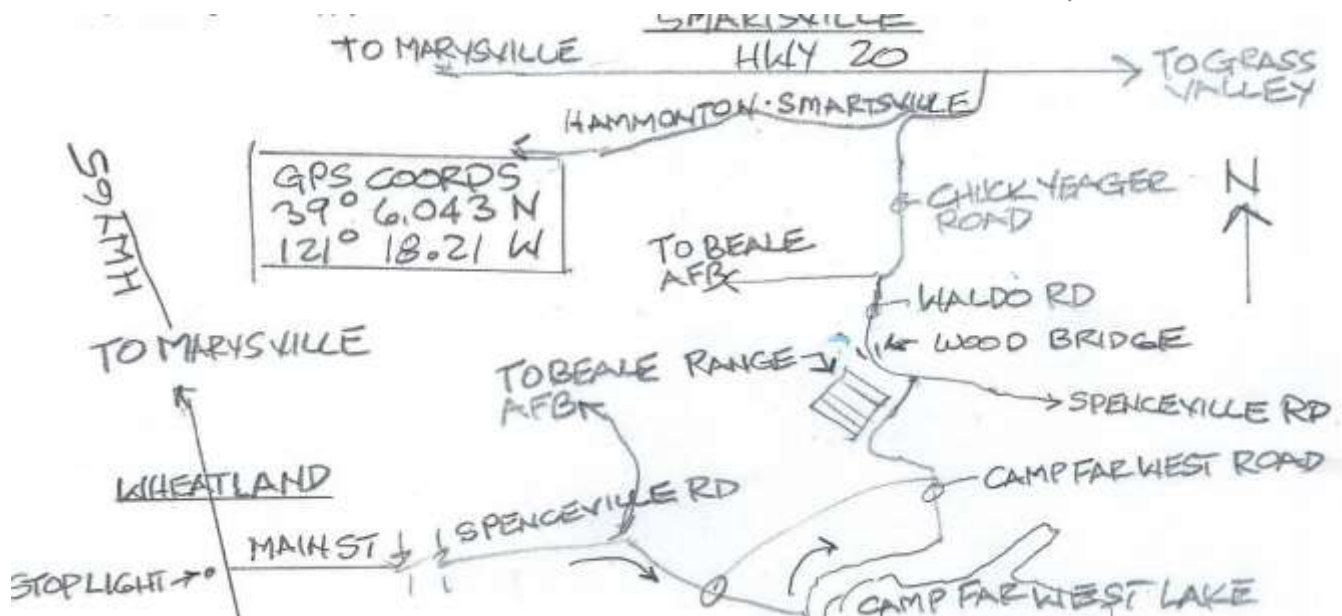 SMARTSVILLE
TO MARYSVILLE
HWY 20
TO GRASS
VALLEY
HAMMONTON-SMARTSVILLE
HWY 65
GPS COORDS
39° 6.043 N
121° 18.21 W
CHUCK YEAGER
ROAD
N
TO BEALE
AFB
WALDO RD
WOOD BRIDGE
TO MARYSVILLE
RANGE
TO BEALE
AFB
SPENCEVILLE RD
WHEATLAND
CAMP FAR WEST ROAD
SPENCEVILLE RD
MAIN ST
STOP LIGHT
CAMP FAR WEST LAKE